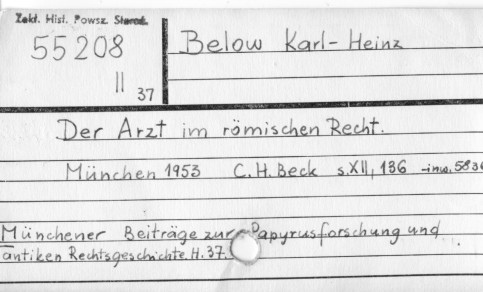 Zakł. Hist. Powsz. Staroż.
55208
II 37
Below Karl-Heinz
Der Arzt im römischen Recht.
München 1953 C.H. Beck s. XII, 136 -inw. 5836
Münchener Beiträge zur Papyrusforschung und
antiken Rechtsgeschichte. H. 37.